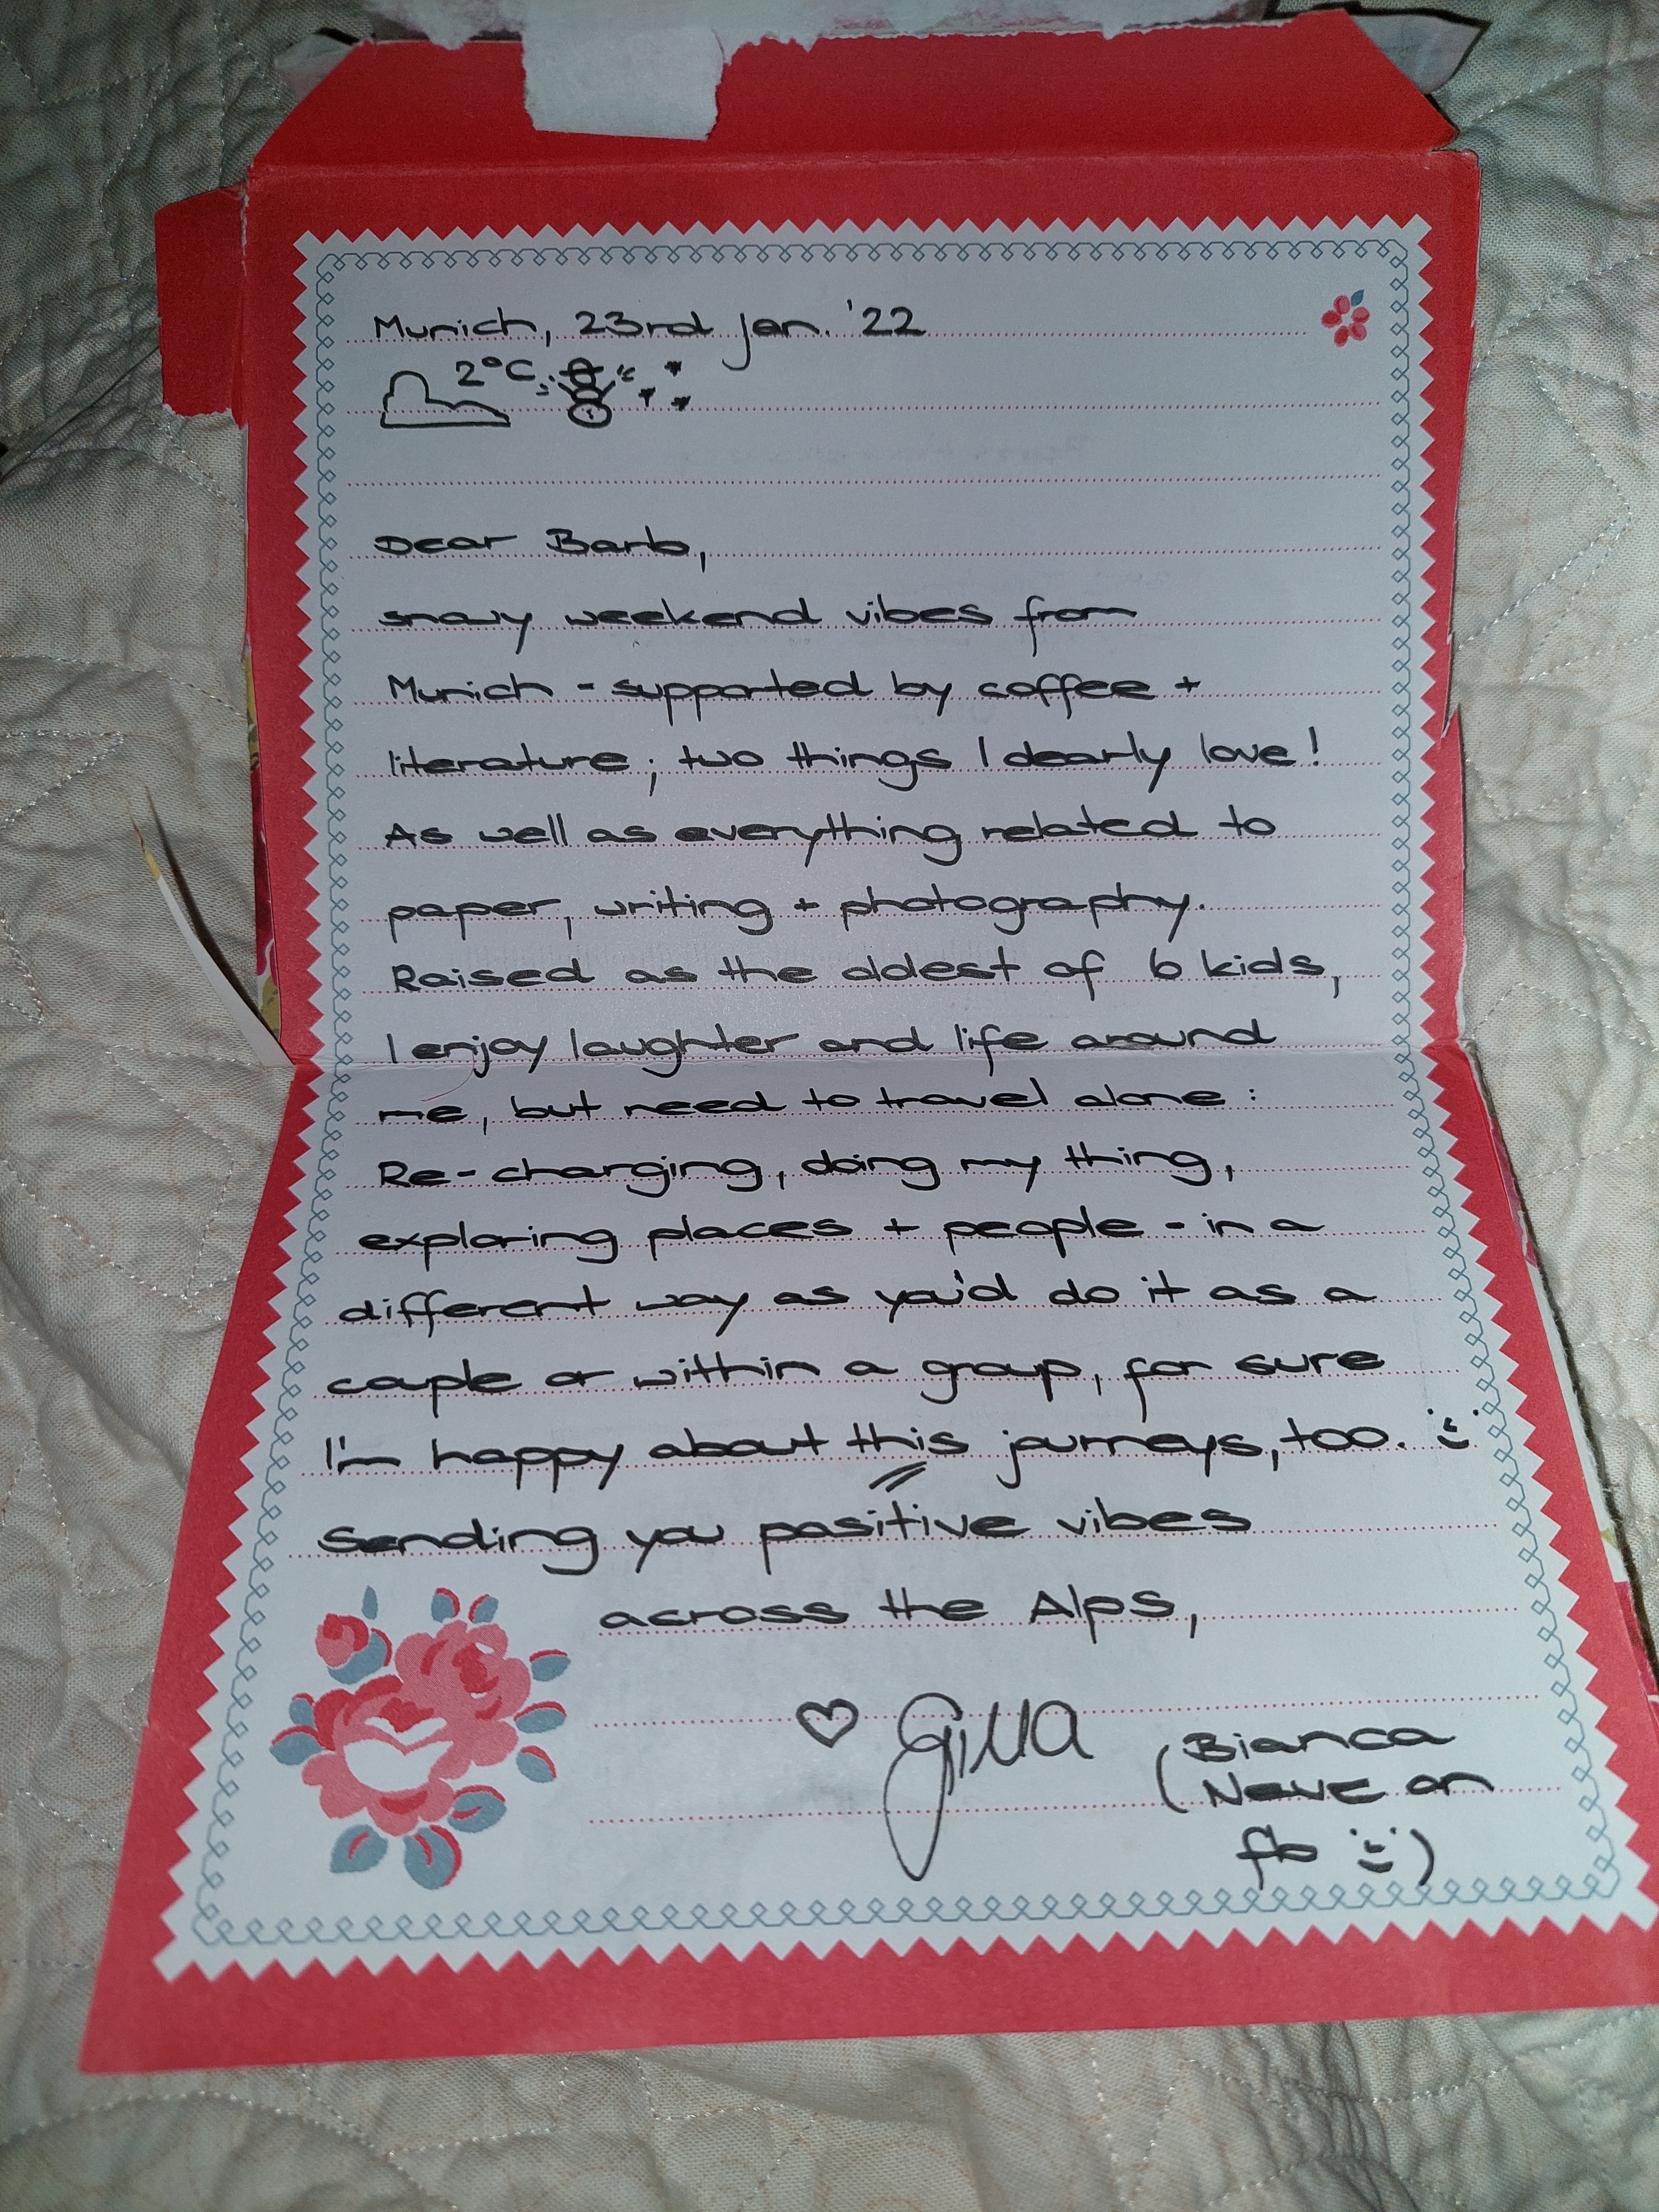 Munich, 23rd Jan. '22
2°C
Dear Barb,
snowy weekend vibes from
Munich - supported by coffee +
literature; two things I dearly love!
As well as everything related to
paper, writing + photography.
Raised as the oldest of 6 kids,
I enjoy laughter and life around
me, but need to travel alone:
Re-charging, doing my thing,
exploring places + people - in a
different way as you'd do it as a
couple or within a group, for sure
I'm happy about this journeys, too.
Sending you positive vibes
across the Alps,
♡ Gilla
(Bianca
Neve on
fb :))